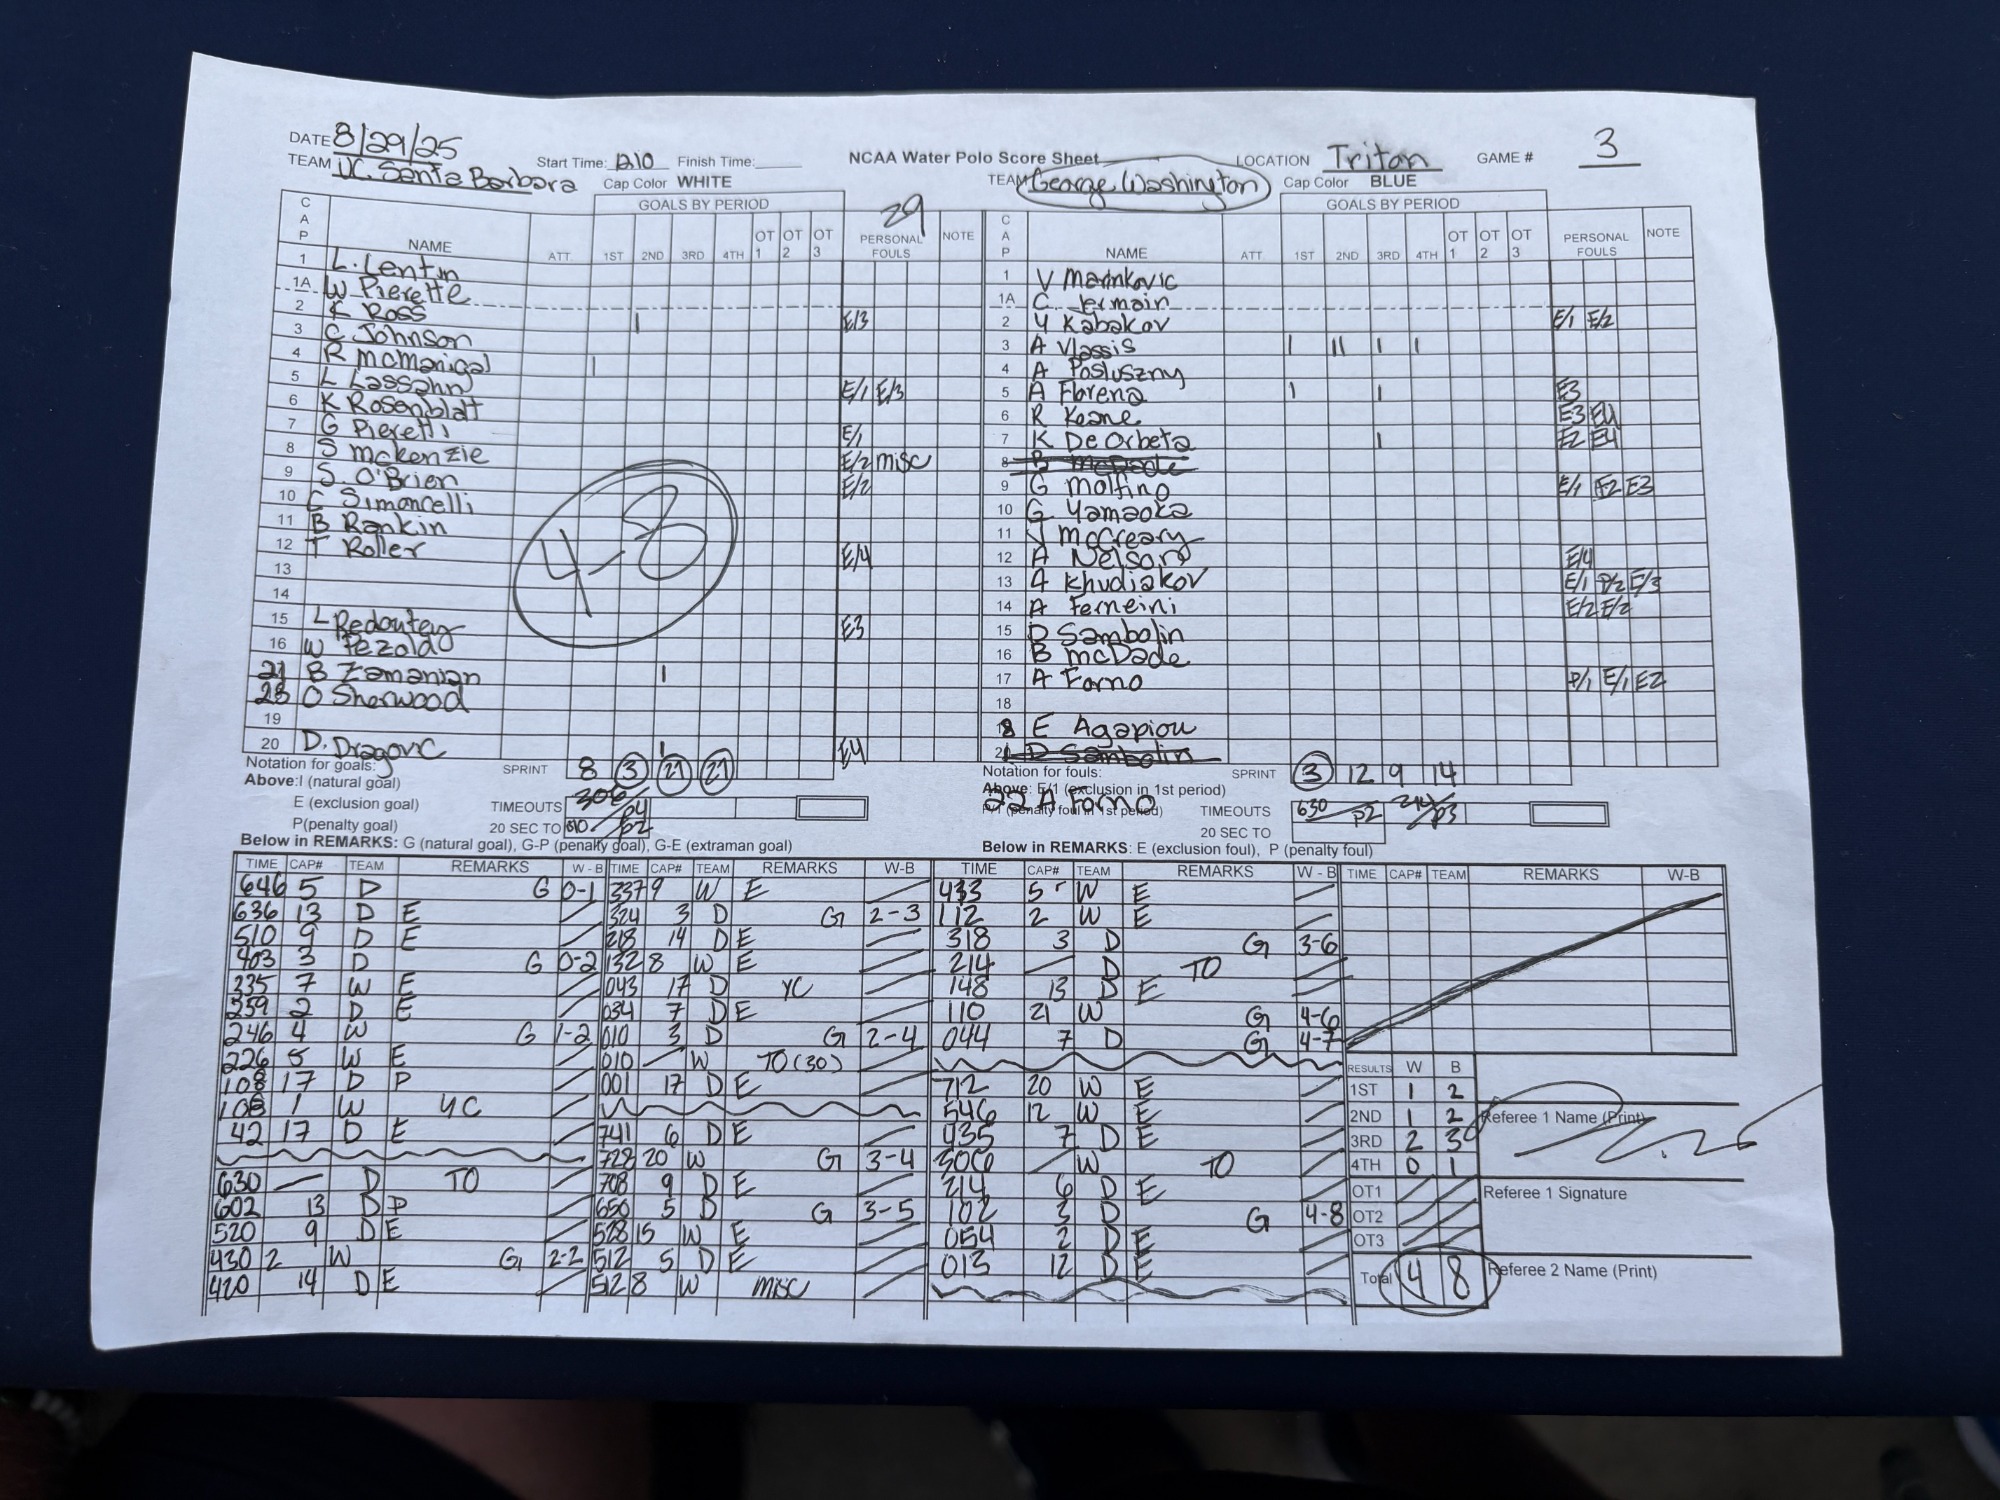 DATE 8/29/25
TEAM UC. Santa Barbara Start Time: 1210 Finish Time: NCAA Water Polo Score Sheet LOCATION Triton GAME # 3
Cap Color WHITE TEAM George Washington Cap Color BLUE
GOALS BY PERIOD 29 GOALS BY PERIOD
CAP NAME ATT 1ST 2ND 3RD 4TH OT 1 OT 2 OT 3 PERSONAL FOULS NOTE CAP NAME ATT 1ST 2ND 3RD 4TH OT 1 OT 2 OT 3 PERSONAL FOULS NOTE
1 L. Lentin
1A W Pierette
2 K Ross I E/3
3 C Johnson
4 R McManigal I
5 L Lassahn E/1 E/3
6 K Rosenblatt
7 G Pieretti E/1
8 S McKenzie E/2 misc
9 S. O'Brien E/2
10 C Simoncelli
11 B Rankin
12 T Roller E/4
13
14
15 L Redoutey E3
16 W Pezold
21 B Zamanian I
28 O Sherwood
19
20 D. Dragovic I E4
4-8
1 V Marinkovic
1A C Jermain
2 Y Kabakov E/1 E/2
3 A Vlassis I II I I
4 A Posluszny
5 A Florena I I E3
6 R Keane E3 E4
7 K De Orbeta I E2 E4
8 B McDade
9 G Molfino E/1 E2 E3
10 G Yamaoka
11 J McCreary
12 A Nelson E/4
13 A Khudiakov E/1 P/2 E/3
14 A Ferneini E/2 E/2
15 D Sambolin
16 B McDade
17 A Forno P/1 E/1 E2
18
18 E Agapiou
20 D Sambolin
22 A Forno
Notation for goals: SPRINT 8 3 21 21
Above: I (natural goal)
E (exclusion goal) TIMEOUTS 306/P4
P(penalty goal) 20 SEC TO 010/P2
Notation for fouls: SPRINT 3 12 9 14
Above: E/1 (exclusion in 1st period)
P/1 (penalty foul in 1st period) TIMEOUTS 630/P2 214/P3
20 SEC TO
Below in REMARKS: G (natural goal), G-P (penalty goal), G-E (extraman goal) Below in REMARKS: E (exclusion foul), P (penalty foul)
TIME CAP# TEAM REMARKS W - B
646 5 D G 0-1
636 13 D E
510 9 D E
403 3 D G 0-2
335 7 W E
259 2 D E
246 4 W G 1-2
226 5 W E
108 17 D P
108 1 W YC
42 17 D E
630 — D TO
602 13 D P
520 9 D E
430 2 W G 2-2
420 14 D E
TIME CAP# TEAM REMARKS W-B
337 9 W E
324 3 D G 2-3
218 14 D E
132 8 W E
043 17 D YC
034 7 D E
010 3 D G 2-4
010 — W TO (30)
001 17 D E
741 6 D E
728 20 W G 3-4
708 9 D E
650 5 D G 3-5
528 15 W E
512 5 D E
512 8 W misc
TIME CAP# TEAM REMARKS W - B
433 5 W E
112 2 W E
318 3 D G 3-6
214 — D TO
148 13 D E
110 21 W G 4-6
044 7 D G 4-7
712 20 W E
546 12 W E
435 7 D E
306 — W TO
214 6 D E
102 3 D G 4-8
054 2 D E
013 12 D E
TIME CAP# TEAM REMARKS W-B
RESULTS W B
1ST 1 2
2ND 1 2 Referee 1 Name (Print)
3RD 2 3
4TH 0 1
OT1 Referee 1 Signature
OT2
OT3
Total 4 8 Referee 2 Name (Print)